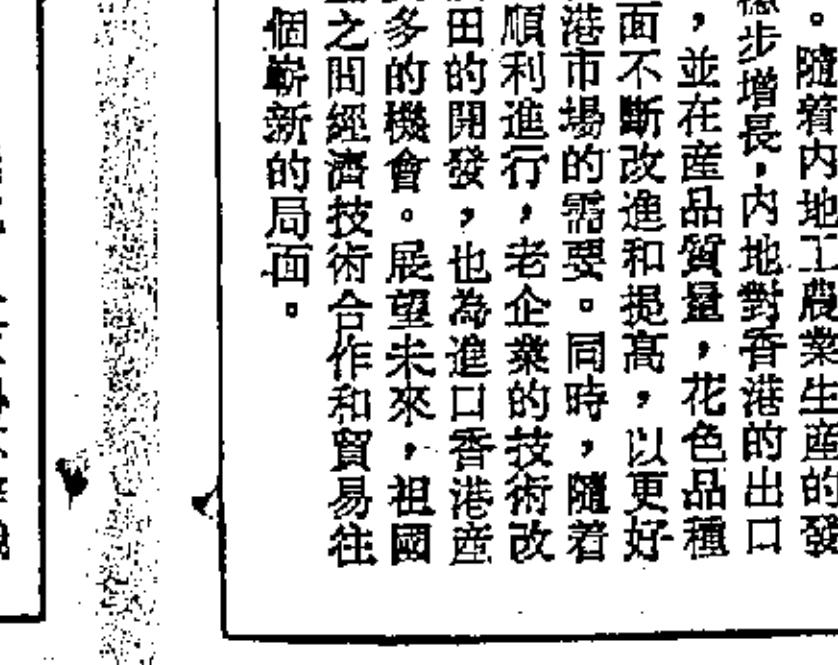 。隨着内地工農業生産的發
步增長，内地對香港的出口
，並在産品質量，花色品種
面不斷改進和提高，以更好
港市場的需要。同時，隨着
順利進行，老企業的技術改
田的開發，也為進口香港産
多的機會。展望未來，祖國
之間經濟技術合作和貿易往
個嶄新的局面。